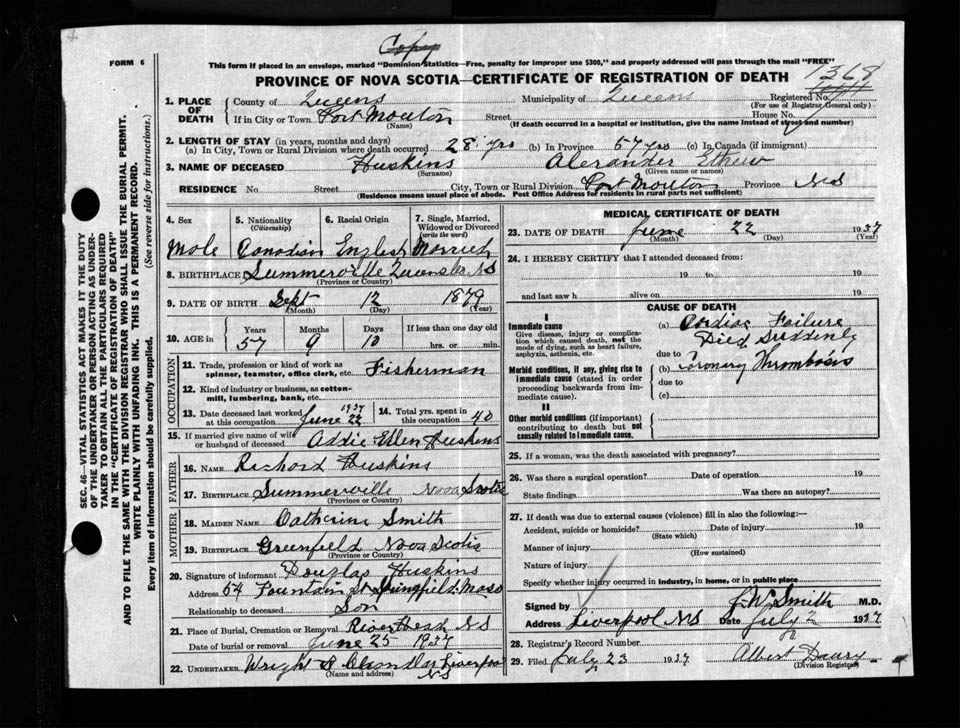 Copy
FORM 6
This form if placed in an envelope, marked "Dominion Statistics—Free, penalty for improper use $300," and properly addressed will pass through the mail "FREE"
PROVINCE OF NOVA SCOTIA—CERTIFICATE OF REGISTRATION OF DEATH
1368
1. PLACE OF DEATH
County of Queens Municipality of Queens Registered No.
(For use of Registrar General only)
If in City or Town Port Mouton Street House No.
(Name) (If death occurred in a hospital or institution, give the name instead of street and number)
2. LENGTH OF STAY (in years, months and days)
(a) In City, Town or Rural Division where death occurred 28 yrs (b) In Province 57 yrs (c) In Canada (if immigrant)
3. NAME OF DECEASED Huskins Alexander
(Surname) (Given name or names)
RESIDENCE No. Street City, Town or Rural Division Port Mouton Province NS
(Residence means usual place of abode. Post Office Address for residents in rural parts not sufficient)
4. Sex 5. Nationality (Citizenship) 6. Racial Origin 7. Single, Married, Widowed or Divorced (write the word)
Male Canadian English Married
8. BIRTHPLACE Summerville Queens Co NS
(Province or Country)
9. DATE OF BIRTH Sept 12 1879
(Month) (Day) (Year)
10. AGE in Years Months Days If less than one day old
57 9 10 hrs. or min.
OCCUPATION
11. Trade, profession or kind of work as spinner, teamster, office clerk, etc. Fisherman
12. Kind of industry or business, as cotton-mill, lumbering, bank, etc.
13. Date deceased last worked at this occupation June 22 1937 14. Total yrs. spent in this occupation 40
15. If married give name of wife or husband of deceased Addie Ellen Huskins
FATHER
16. NAME Richard Huskins
17. BIRTHPLACE Summerville Nova Scotia
(Province or Country)
MOTHER
18. MAIDEN NAME Catherine Smith
19. BIRTHPLACE Greenfield Nova Scotia
(Province or Country)
20. Signature of informant Douglas Huskins
Address 54 Fountain St Springfield Mass
Relationship to deceased Son
21. Place of Burial, Cremation or Removal NS
Date of burial or removal June 25 1937
22. UNDERTAKER Wright & Chandler Liverpool NS
(Name and address)
MEDICAL CERTIFICATE OF DEATH
23. DATE OF DEATH June 22 1937
(Month) (Day) (Year)
24. I HEREBY CERTIFY that I attended deceased from:
19 to 19
and last saw h alive on 19
CAUSE OF DEATH
I
Immediate cause
Give disease, injury or complication which caused death, not the mode of dying, such as heart failure, asphyxia, asthenia, etc.
(a) Cardiac Failure
Died Suddenly
due to
Morbid conditions, if any, giving rise to immediate cause (stated in order proceeding backwards from immediate cause).
(b) Coronary Thrombosis
due to
(c)
II
Other morbid conditions (if important) contributing to death but not causally related to immediate cause.
25. If a woman, was the death associated with pregnancy?
26. Was there a surgical operation? Date of operation 19
State findings Was there an autopsy?
27. If death was due to external causes (violence) fill in also the following:—
Accident, suicide or homicide? Date of injury 19
(State which)
Manner of injury
(How sustained)
Nature of injury
Specify whether injury occurred in industry, in home, or in public place
Signed by Smith M.D.
Address Liverpool NS Date July 2 1937
28. Registrar's Record Number
29. Filed July 23 1937 Albert
(Division Registrar)
SEC. 46—VITAL STATISTICS ACT MAKES IT THE DUTY
OF THE UNDERTAKER OR PERSON ACTING AS UNDER-
TAKER TO OBTAIN ALL THE PARTICULARS REQUIRED
IN THE "CERTIFICATE OF REGISTRATION OF DEATH"
AND TO FILE THE SAME WITH THE DIVISION REGISTRAR WHO SHALL ISSUE THE BURIAL PERMIT.
WRITE PLAINLY WITH UNFADING INK. THIS IS A PERMANENT RECORD.
Every item of information should be carefully supplied. (See reverse side for instructions.)